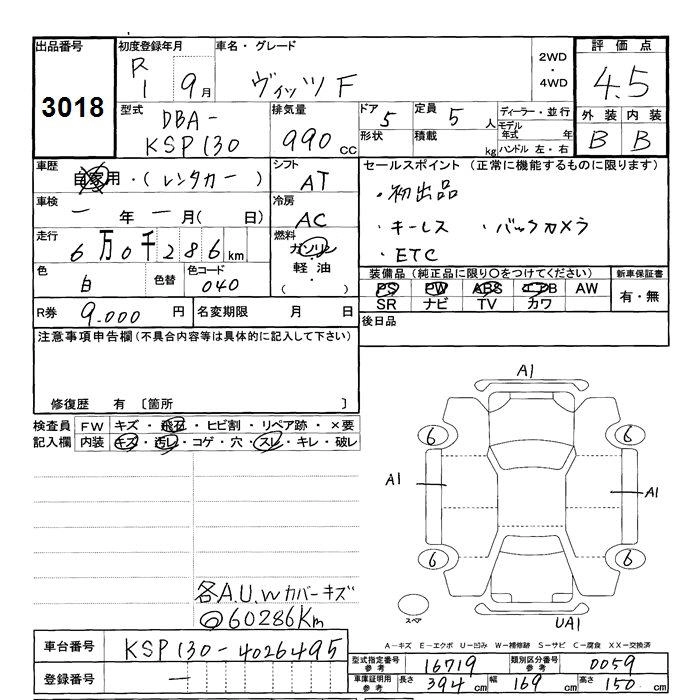 出品番号
3018
初度登録年月
R 1 9月
車名・グレード
ヴィッツ F
2WD
・
4WD
評価点
4.5
外装 内装
B B
型式
DBA-
KSP130
排気量
990 cc
ドア 5
定員 5 人
形状
積載 kg
ディーラー・並行
モデル年式 年
ハンドル 左・右
車歴
自家用・(レンタカー)
シフト
AT
車検
― 年 ― 月( 日)
冷房
AC
走行
6万0千286km
燃料
ガソリン
・
軽油
・
( )
色
白
色替
色コード
040
R券 9.000 円
名変期限 月 日
セールスポイント (正常に機能するものに限ります)
・初出品
・キーレス ・バックカメラ
・ETC
装備品 (純正品に限り○をつけてください)
PS PW ABS エアB AW
SR ナビ TV カワ
新車保証書
有・無
後日品
注意事項申告欄 (不具合内容等は具体的に記入して下さい)
修復歴 有 〔箇所 〕
検査員記入欄
FW キズ・飛石・ヒビ割・リペア跡・×要
内装 キズ・汚レ・コゲ・穴・スレ・キレ・破レ
各A.U.Wカバーキズ
◎60286Km
A1
6 6
A1 A1
6 6
スペア
UA1
A-キズ E-エクボ U-凹み W-補修跡 S-サビ C-腐食 XX-交換済
車台番号 KSP130-4026495
登録番号 ―
型式指定番号 参考 16719
類別区分番号 参考 0059
車庫証明用 参考 長さ 394 cm 幅 169 cm 高さ 150 cm